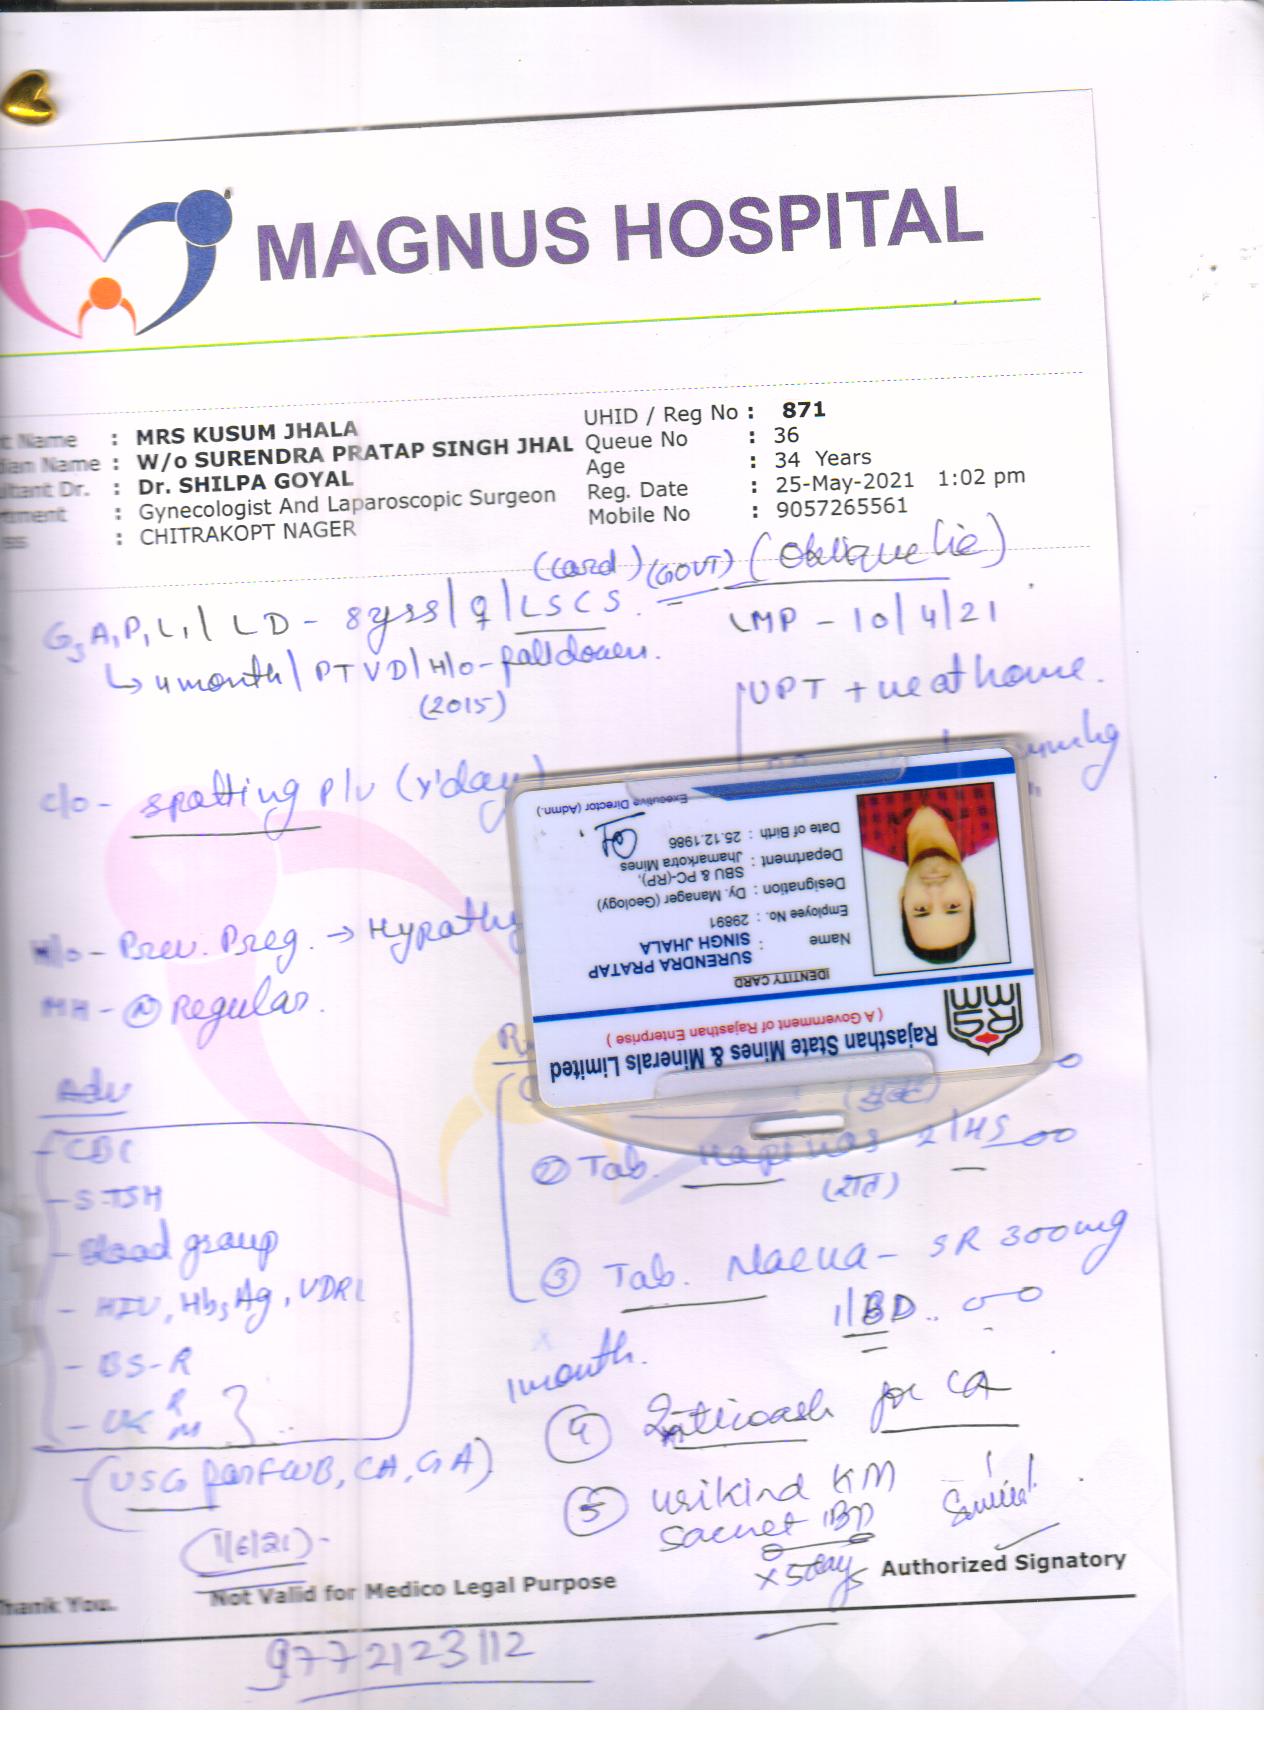 MAGNUS HOSPITAL
t Name : MRS KUSUM JHALA
dian Name : W/o SURENDRA PRATAP SINGH JHAL
ultant Dr. : Dr. SHILPA GOYAL
rtment : Gynecologist And Laparoscopic Surgeon
ess : CHITRAKOPT NAGER
UHID / Reg No : 871
Queue No : 36
Age : 34 Years
Reg. Date : 25-May-2021 1:02 pm
Mobile No : 9057265561
(card) (GOVT) (Oblique lie)
G3A1P1L1 | LD - 8yrs | ♀ | LSCS.
↳ 4month | PTVD | H/o - fall down.
(2015)
LMP - 10/4/21
UPT +ve at home.
c/o - spotting p/v (y'day)
H/o - Prev. Preg. → Hypothy
MH - (N) Regular.
Adv
- CBC
- S.TSH
- Blood group
- HIV, HbsAg, VDRL
- BS-R
- UK R M } ..
- (USG for FWB, CA, GA)
(1/6/21) -
Rajasthan State Mines & Minerals Limited
( A Government of Rajasthan Enterprise )
RSMM
IDENTITY CARD
Name : SURENDRA PRATAP
SINGH JHALA
Employee No. : 29891
Designation : Dy. Manager (Geology)
Department : SBU & PC-(RP),
Jhamarkotra Mines
Date of Birth : 25.12.1986
Executive Director (Admn.)
② Tab. 2 | HS
(रात)
③ Tab. SR 300mg
1 | BD..
1month.
④ for CA
⑤ Urikind KM
sachet 1BD
x 5 days
Authorized Signatory
Thank You.
Not Valid for Medico Legal Purpose
9772123112